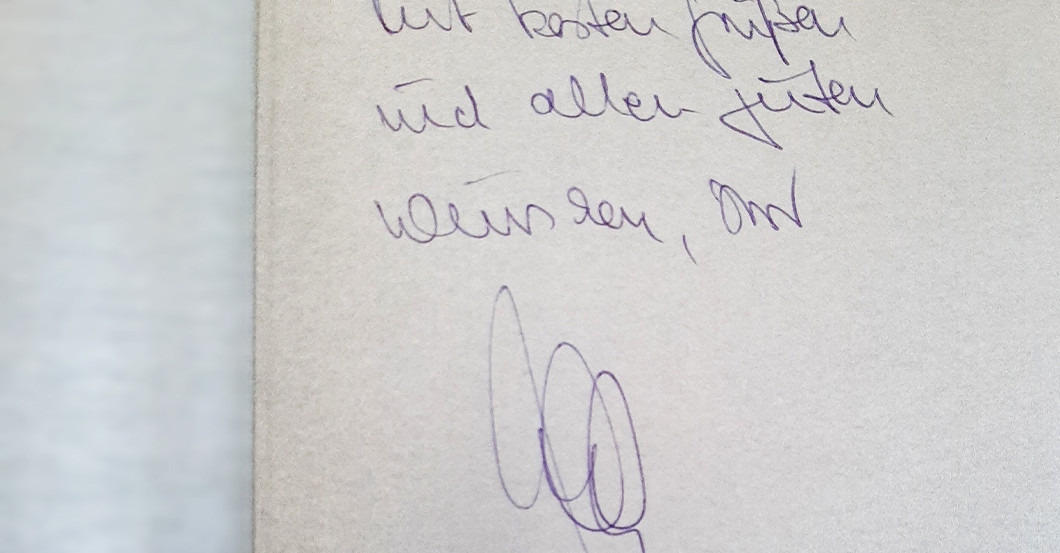 mit besten Grüßen
und allen guten
Wünschen, Ihr